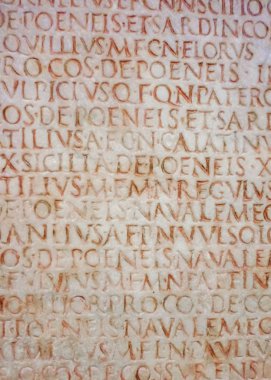 SCIPIO
POENEIS ET SARDIN CO
QVILLIVS M F C N FLORVS
PRO COS DE POENEIS
VLPICIVS Q F Q N PATERC
COS DE POENEIS ET SAR
ATILIVS A F C N CALATINV
X SICILIA DE POENEIS X
TILIVS M F M N REGVLVS
POENEIS NAVALEM EG
ANLIVS A F P N VVLSO LO
POENEIS NAVALEM EG
M F M N PAETIN
PRO COS DE CO
T POENEIS NAVALEM E
M F L N PAVLLV
COS DE COSSVRENSI